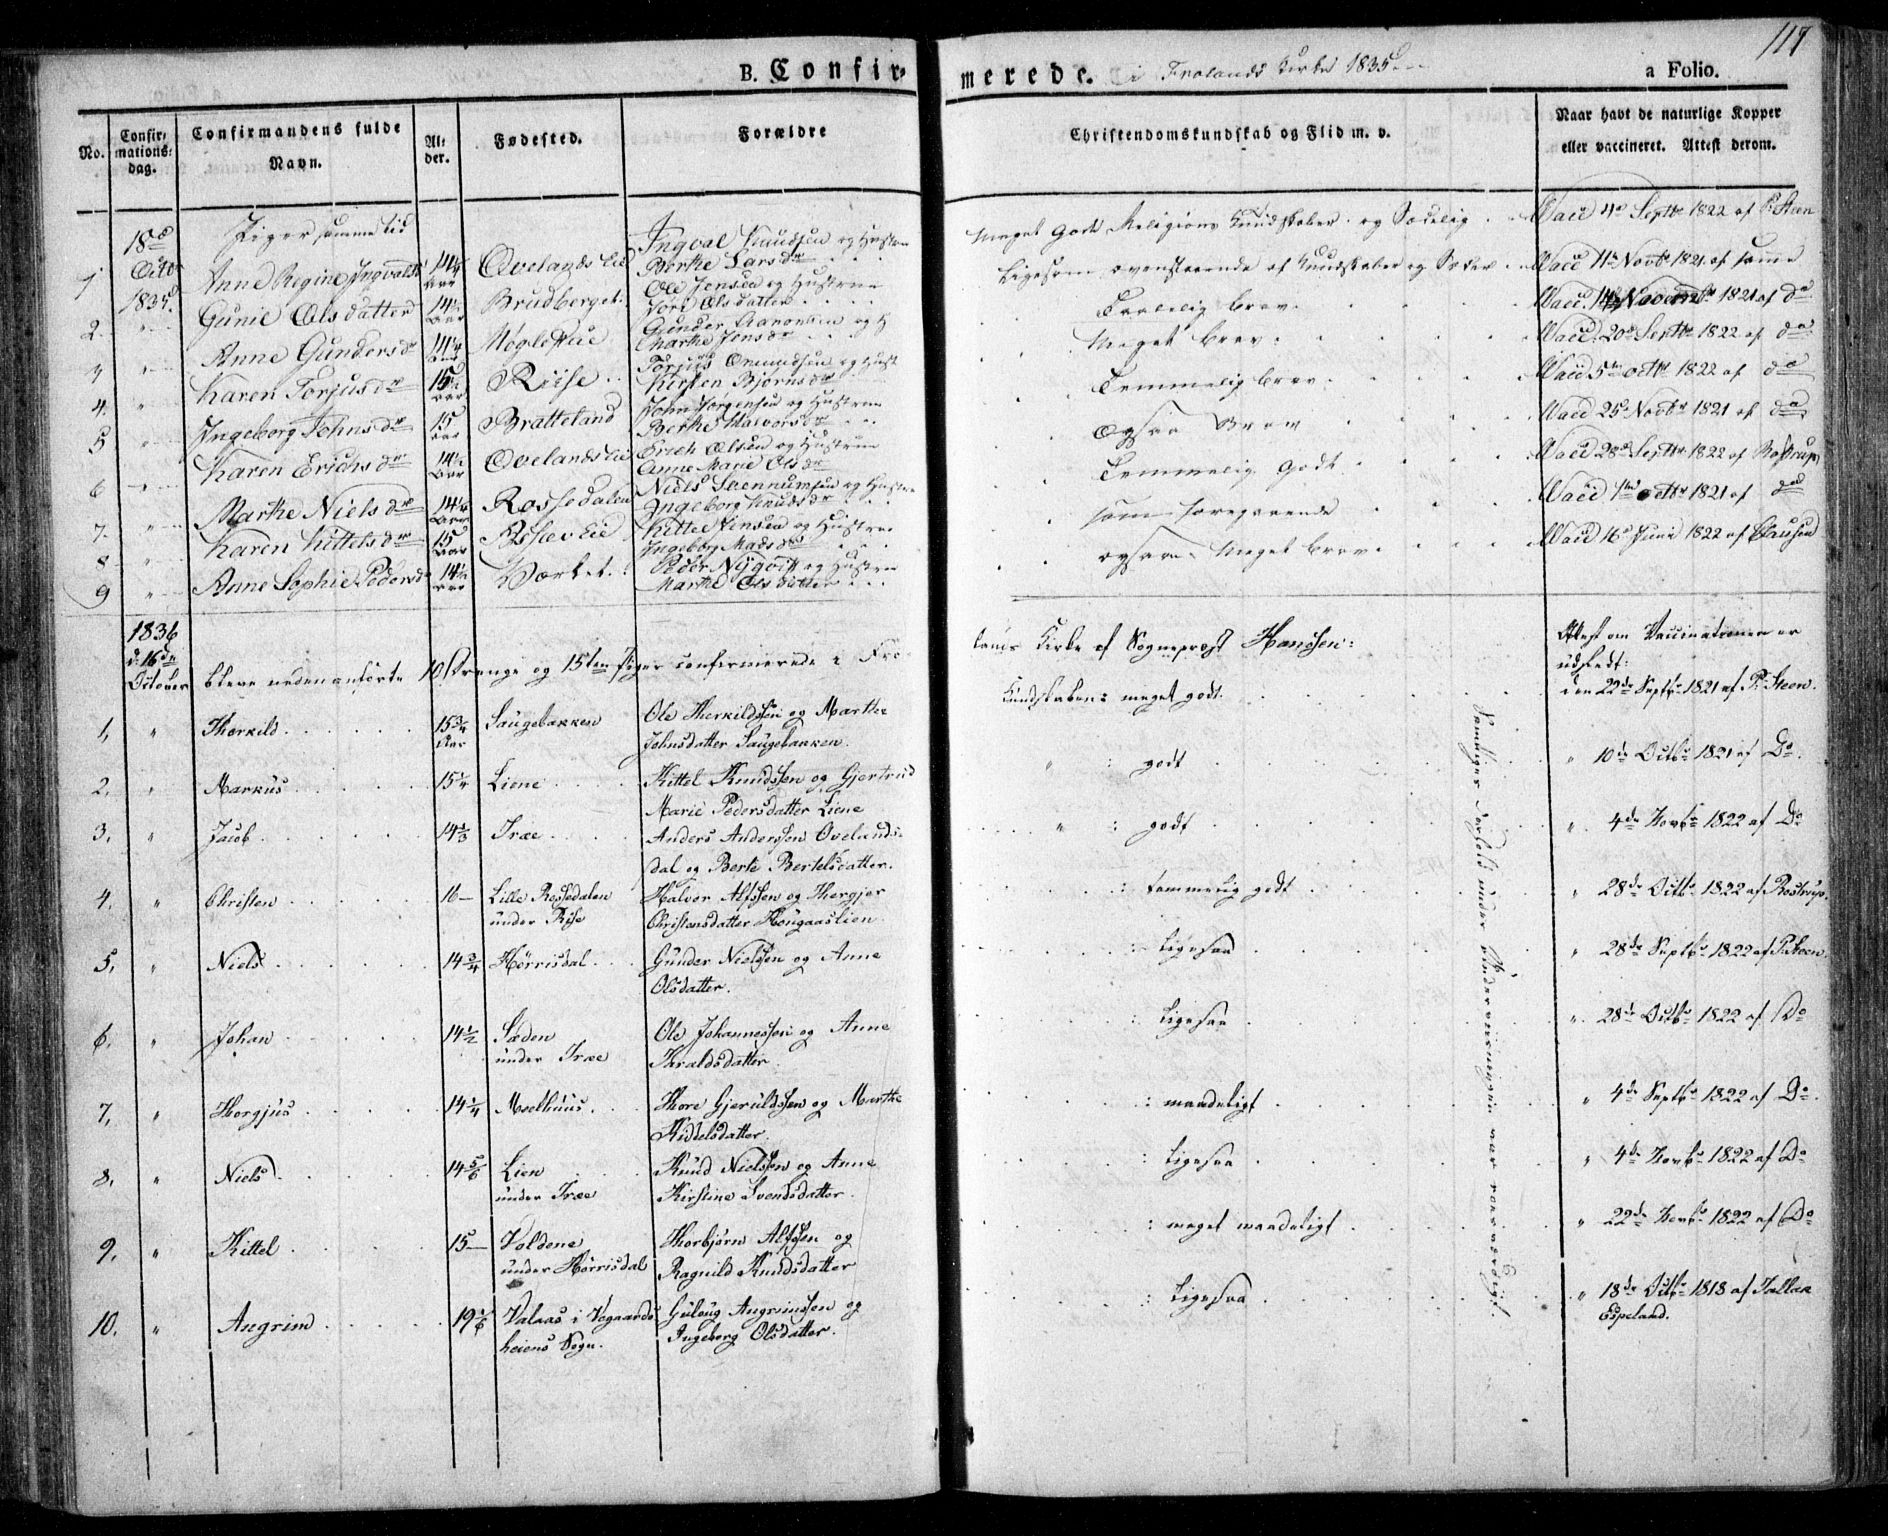 117
B. Confirmerede. i Frolands Kirke 1835
a Folio.
No. Confirmationsdag. Confirmandens fulde Navn. Alder. Fødested. Forældre Christendomskundskab og Flid m. v. Naar havt de naturlige Kopper eller vaccineret. Attest derom.
18de Octbr 1835 Piger samme tid
1 Anne Regine Ingvalds 14 1/4 Aar Ovelandslie Ingval Knudsen og Hustrue Berthe Larsdr Meget Gode Religions Kundskaber og Sædelig Vacc 4de Septbr 1822 af P. Steen
2. " Gunie Olsdatter 14 1/2 Aar Brudberget Ole Jensen og Hustrue Jori Olsdatter Ligesom ovenstaaende af Kundskaber og Sæder Vacc 11te Novbr 1821 af samme
3 " Anne Gundersdr 14 1/4 Aar Møglestue Gunder Aaronsen og H Marthe Jensdr Vacc. Novembr 1821 af do
4. " Karen Torjusdr 15 1/2 aar Riise Torjus Omundsen og Hust Kirsten Bjørnsdr Meget brav Vacc. 20de Septbr 1822 af do
5 " Ingeborg Johnsdr 15 aar Bratteland John Jørgensen og Hustrue Berthe Halvorsdr Temmelig brav Vacc 5te octbr 1822 af do
6 " Karen Erichsdr 14 1/2 Aar Ovelandslie Erich Olsen og Hustrue Anne Marie Olsdr ogsaa Brav Vacc 25de Novbr 1821 af do
7. " Marthe Nielsdr 14 1/4 Aar Rossedalen Niels og Hustrue Ingeborg Knudsdr Temmelig Godt Vacc 28de Septbr 1822 af Rostrup
8 " Karen Kittelsdr 15 Aar Kittel Jensen og Hustrue Ingeborg Madsdr som foregaaende Vacc 1te octbr 1821 af do
9 " Anne Sophie Pedersdr 14 1/2 aar Værket Peder Nygviig og Hustrue Marthe Olsdatter ogsaa Meget brav Vacc 16de Juni 1822 af Clausen
1836 d: 16de October bleve nedenanførte 10 Drenge og 15ten Piger confirmerede i Frolands Kirke af Sogneprest Hanssen: Attest om Vaccinationen er udstedt:
1, " Thorkild 15 3/4 Aar Saugebakken Ole Therkildssen og Marthe Johnsdatter Saugebakken. Kundskaber: meget godt. den 22de Septbr 1821 af P. Steen.
2. " Markus 15 1/4 Liene Kittel Knudssen og Gjertrud Marie Pedersdatter Liene " : godt " 10de Octbr 1821 af Do.
3. " Jacob 14 1/3 Træe Anders Anderssen Ovelandsdal og Berte Bertelsdatter. " : godt " 4de Novbr 1822 af Do
4. " Christen 16 — Lille Rossedalen under Rise Halvor Alfssen og Thergjer Christensdatter Hougaaslien : temmelig godt " 28de Octbr 1822 af Rostrup.
5. " Niels 14 3/4 Hørrisdal Gunder Nielssen og Anne Olsdatter. : Ligesaa " 28de Septbr 1822 af P. Steen.
6. " Johan 14 1/2 Sæden under Træe Ole Johannessen og Anne Taraldsdatter : Ligesaa " 28de Octbr 1822 af Do
7. " Thorgjus 14 1/4 Moelhuus Thore Gjeruldssen og Marthe Kittelsdatter. : maadeligt " 4de Septbr 1822 af Do.
8. " Niels 14 5/6 Lien under Træe Knud Nielssen og Anne Kirstine Svendsdatter : Ligesaa " 4de Novbr 1822 af Do
9. " Kittel 15 — Voldene under Hørrisdal Thorbjørn Alfssen og Ragnild Knudsdatter : meget maadeligt " 22de Novbr 1822 af Do
10. " Angrim 19 1/6 Valaas i Vegaardsheiens Sogn. Guloug Angrimssen og Ingeborg Olsdatter. : Ligesaa " 18de Octbr 1818 af Tallak Espeland.
Samtliges Forhold under Underviisningen var roesværdigt.